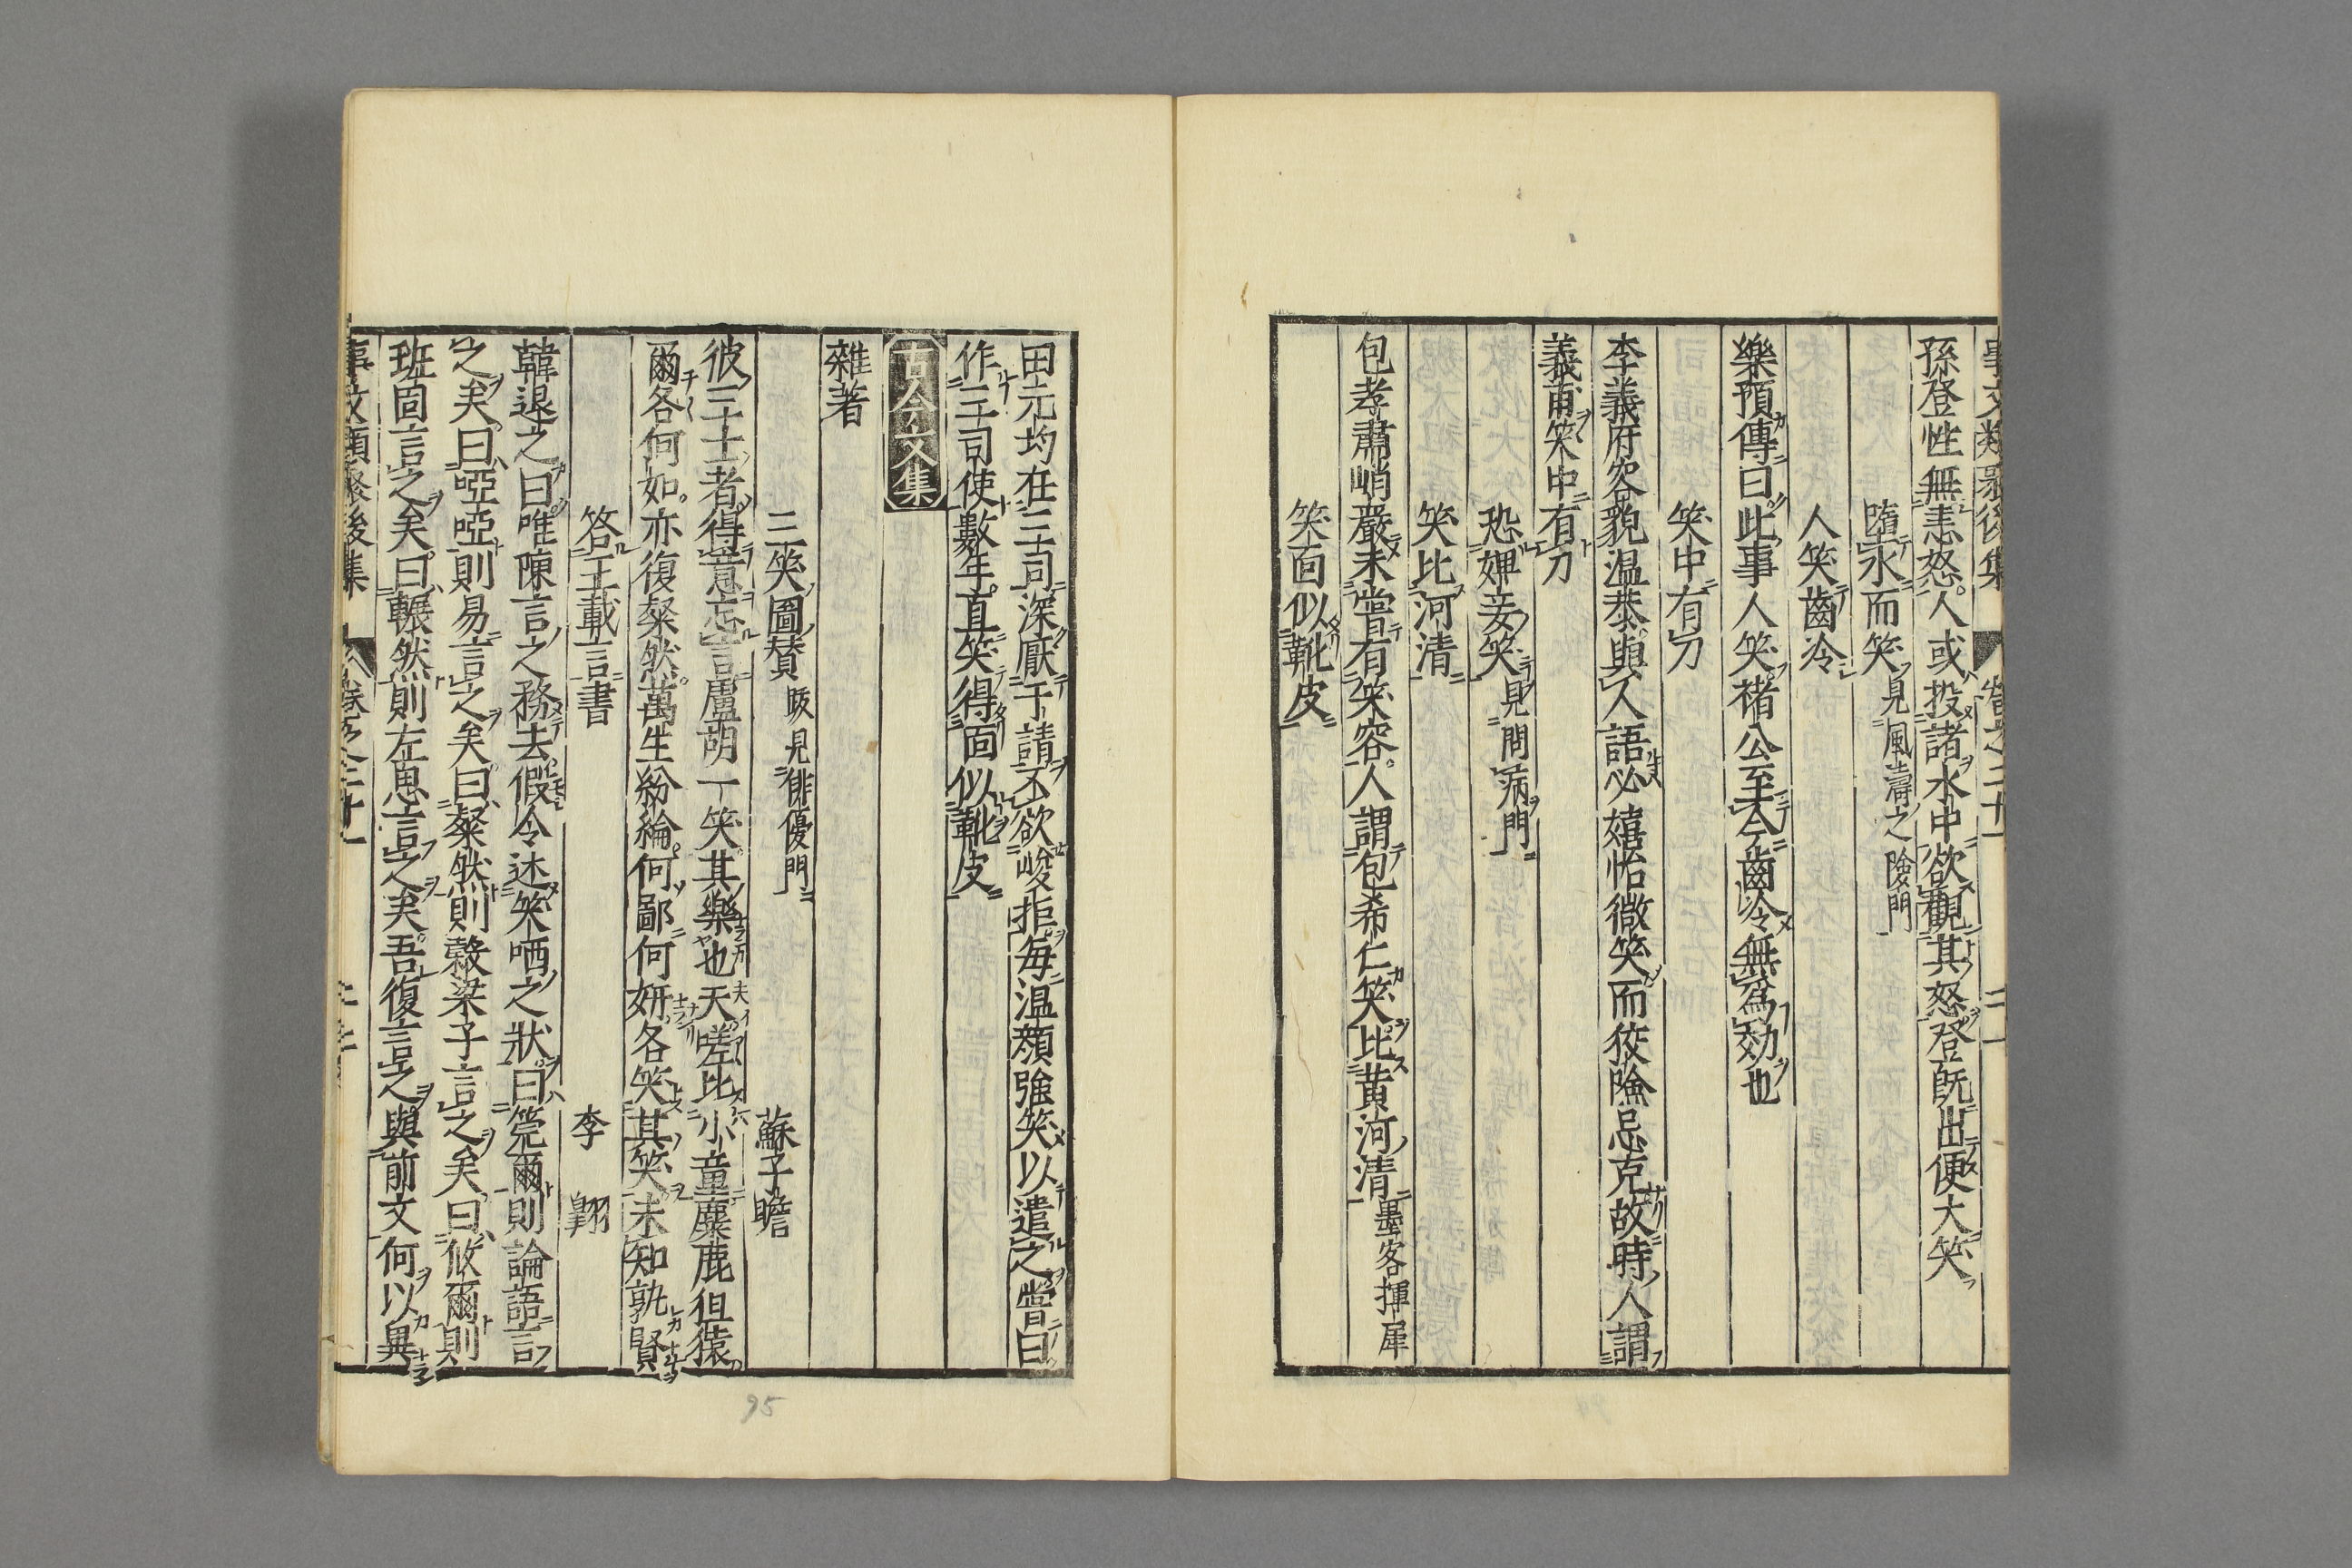 事文類聚後集　卷之二十一
孫登性無恚怒。人或投諸水中欲觀其怒。登旣出便大笑
墮水而笑見風濤之險門
人笑齒冷
樂預傳曰。此事人笑。褚公至今齒冷無爲効也
笑中有刀
李義府容貌温恭。與人語必嬉怡微笑。而狡險忌克。故時人謂
義甫笑中有刀
恐婢妾笑見問病門
笑比河清
包孝肅峭嚴。未嘗有笑容。人謂包希仁笑。比黄河清墨客揮犀
笑面似靴皮
田元均在三司。深厭干請。不欲峻拒。每温顔強笑以遣之。嘗曰
作三司使數年。直笑得面似靴皮
古今文集
雜著
三笑圖贊跋見俳優門　蘇子瞻
彼三士者。得意忘言。盧胡一笑。其樂也天。嗟比小童。麋鹿狙猿
爾各何如。亦復粲然。萬生紛綸。何鄙何妍。各笑其笑。未知孰賢
答王載言書　李翺
韓退之曰。唯陳言之務去。假令述笑哂之狀。曰。莞爾。則論語言
之矣。曰啞啞。則易言之矣。曰粲然。則穀梁子言之矣。曰攸爾。則
班固言之矣。曰輾然。則左思言之矣。吾復言之。與前文何以異
事文類聚後集　卷之二十一